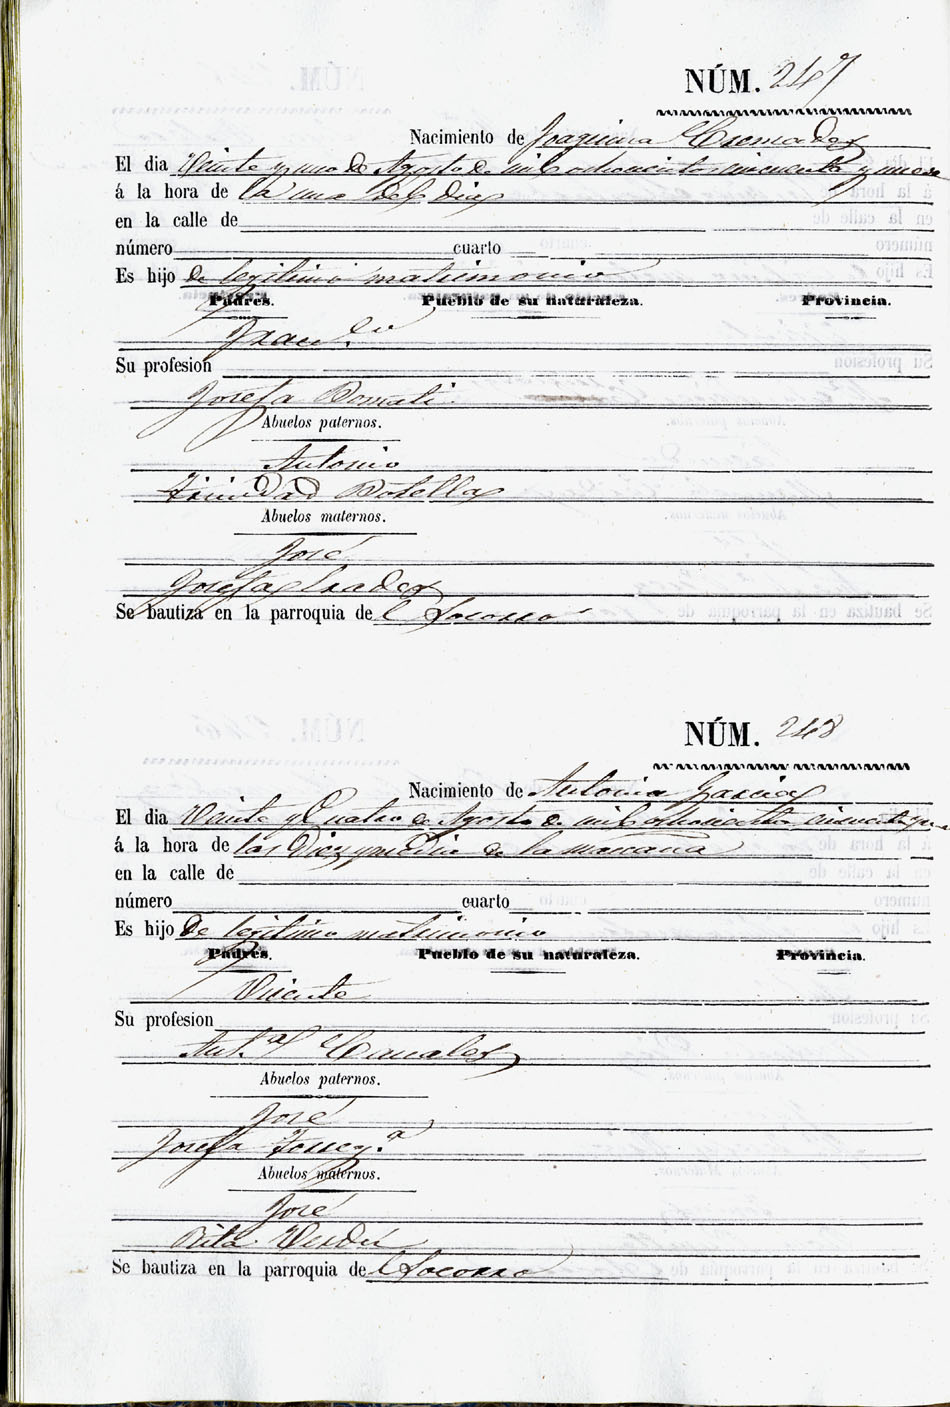 NÚM. 247
Nacimiento de Joaquina Cremades
El dia Veinte y uno de Agosto de mil ochocientos cincuenta y nueve
á la hora de la una del dia
en la calle de
número cuarto
Es hijo de legitimo matrimonio
Padres. Pueblo de su naturaleza. Provincia.
Fran.co
Su profesion
Josefa
Abuelos paternos.
Antonio
Trinidad Botella
Abuelos maternos.
José
Josefa
Se bautiza en la parroquia de el Socorro
NÚM. 248
Nacimiento de Antonia Garcia
El dia Veinte y Cuatro de Agosto de mil ochocientos cincuenta y
á la hora de las Diez y media de la mañana
en la calle de
número cuarto
Es hijo de legitimo matrimonio
Padres. Pueblo de su naturaleza. Provincia.
Vicente
Su profesion
Ant.a Canales
Abuelos paternos.
José
Josefa
Abuelos maternos.
José
Rita Verdú
Se bautiza en la parroquia de el Socorro